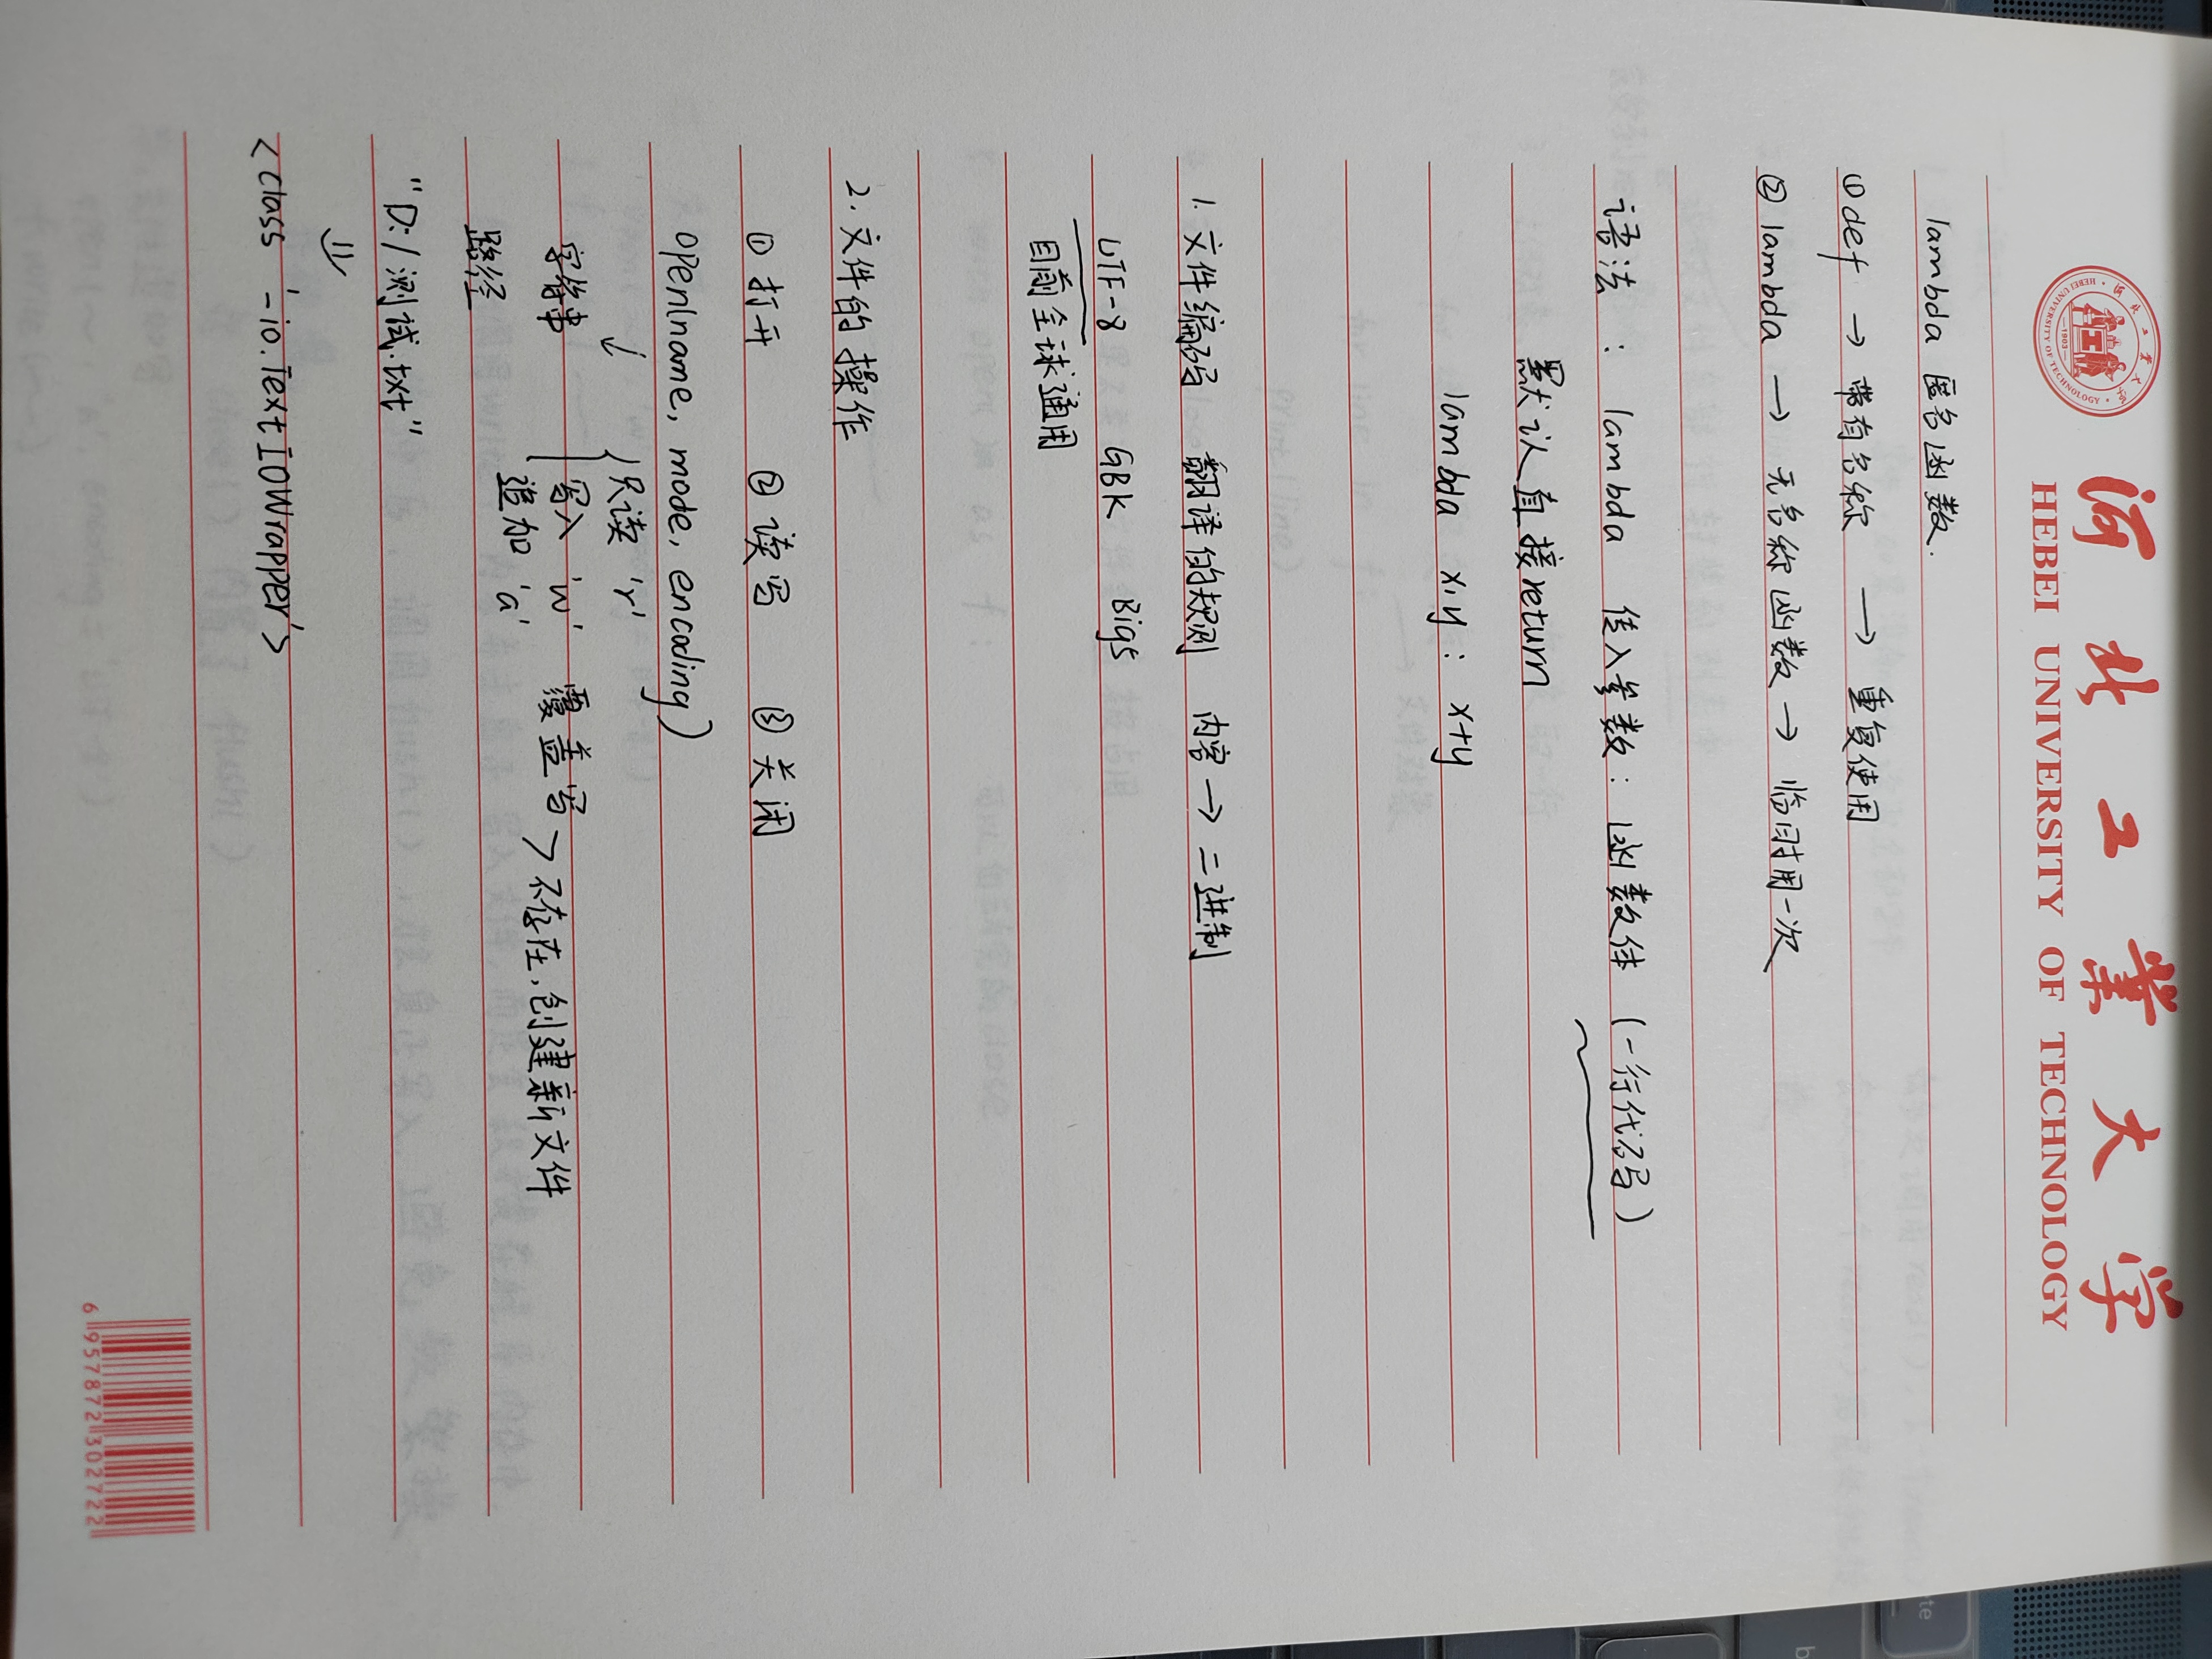 河北工業大学
HEBEI UNIVERSITY OF TECHNOLOGY
河北工業大学
HEBEI UNIVERSITY OF TECHNOLOGY
1903
lambda 匿名函数.
① def → 带有名称 → 重复使用
② lambda → 无名称函数 → 临时用一次
语法 : lambda 传入参数: 函数体 (一行代码)
默认直接return
lambda x,y: x+y
1. 文件编码 翻译的规则 内容 → 二进制
UTF-8 GBK Big5
目前全球通用
2. 文件的操作
① 打开 ② 读写 ③ 关闭
open(name, mode, encoding)
只读 'r'
字符串 写入 'w' 覆盖写 > 不存在,创建新文件
追加 'a'
路径
"D:/测试.txt"
<class '_io.TextIOWrapper'>
6 957872 302722